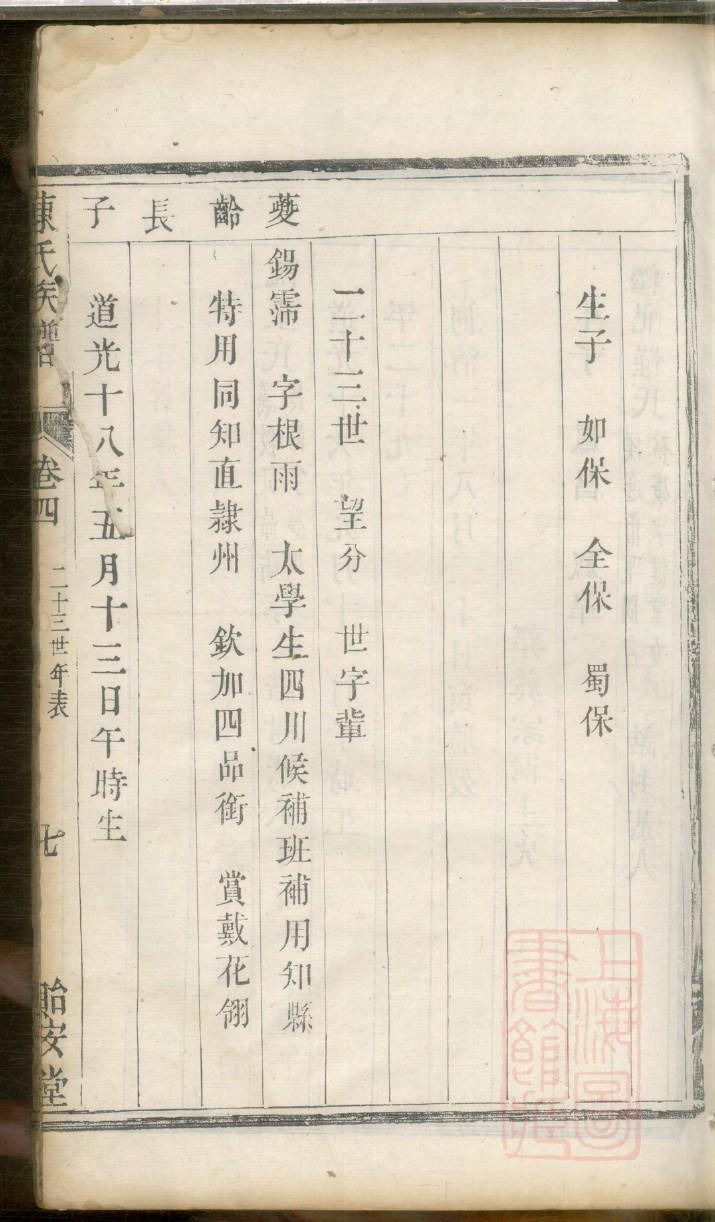 生子　如保　全保　蜀保
二十三世　望分　世字輩
夔齡長子
錫霈　字根雨　太學生四川候補班補用知縣
特用同知直隸州　欽加四品銜　賞戴花翎
道光十八年五月十三日午時生
陳氏族譜　卷四　二十三世年表　七　貽安堂
上海圖書館藏